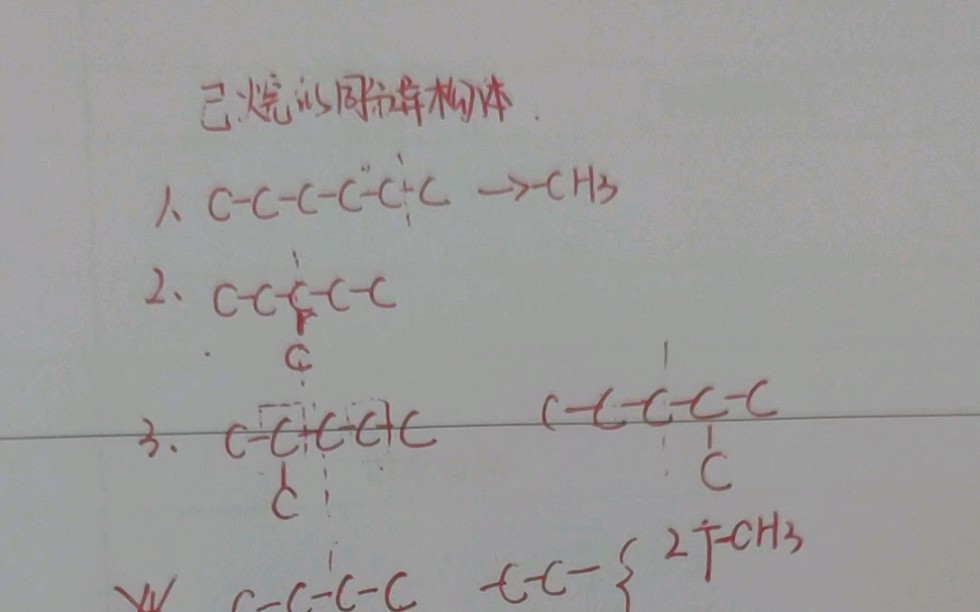 己烷的同分异构体.
1、C-C-C-C-C-C →-CH3
2、C-C-C-C-C
C
3、C-C-C-C-C C-C-C-C-C
C C
C-C-C-C -C-C-{ 2个-CH3